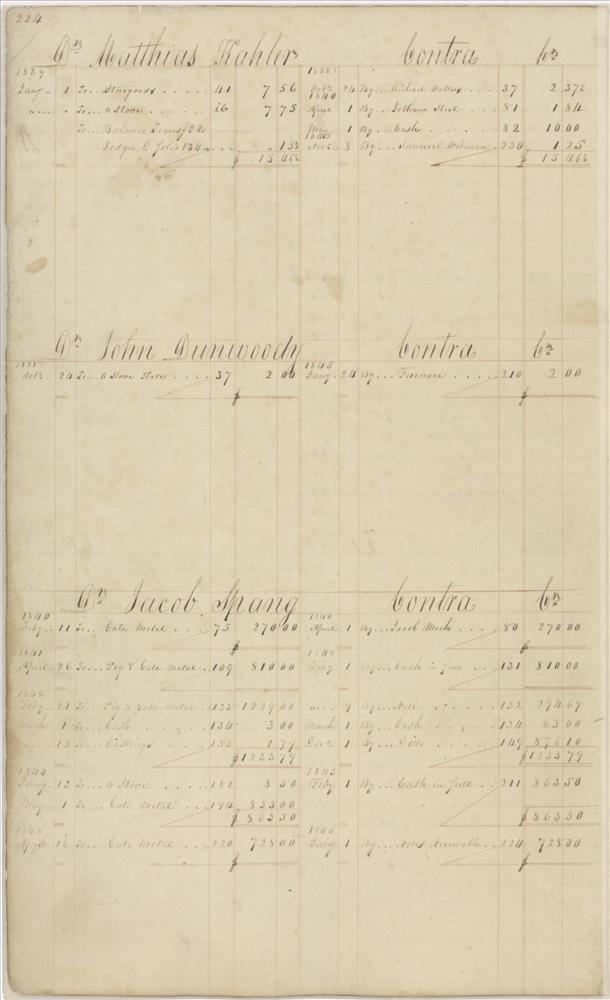 224
Dr. Matthias Kahler Contra Cr.
1839 1838
Jany 1 To Storegoods 41 7 56 Octr 24 By Michael 37 2 37½
1840
" To a Stove 16 7 75 April 1 By Steel 81 1 84
To Balance Transfd to May 1 By Cash 82 10 00
1845
Ledger C folio 134 15½ Novr 8 By Samuel 230 1 25
$ 15 46½ $ 15 46½
Dr. John Dunwoody Contra Cr.
1838 1845
Octr 24 To a Stove 37 2 00 Jany 24 By Furnace 210 2 00
$ $
Dr. Jacob Spang Contra Cr.
1840 1840
Feby 11 To Gate Metal 75 270 00 April 1 By Jacob 80 270 00
$ $
1841 1842
April 26 To Pig & Gate Metal 109 810 00 Feby 1 By Cash in full 131 810 00
1842
Feby 21 To Pig & Gate Metal 133 1229 00 " 7 By Note 132 294 69
March 1 To Cash 134 3 00 March 1 By Cash 134 63 00
13 To Castings 135 1 79 Decr 1 By Ditto 149 876 10
$ 1233 79 $ 1233 79
1844 1845
Jany 13 To a Stove 182 8 50 Feby 1 By Cash in full 211 863 50
May 1 To Gate Metal 194 855 00
$ 863 50 $ 863 50
1845 1845
April 16 To Gate Metal 220 728 00 1 By Notes Receivable 224 728 00
$ $